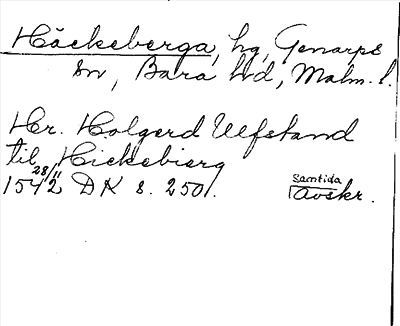 Häckeberga, hg, Genarps
sn, Bara hd, Malm. l.
Hr. Holgerd Ulfstand
til Hickebierg
1542 28/11 DK s. 250.
Samtida
avskr.